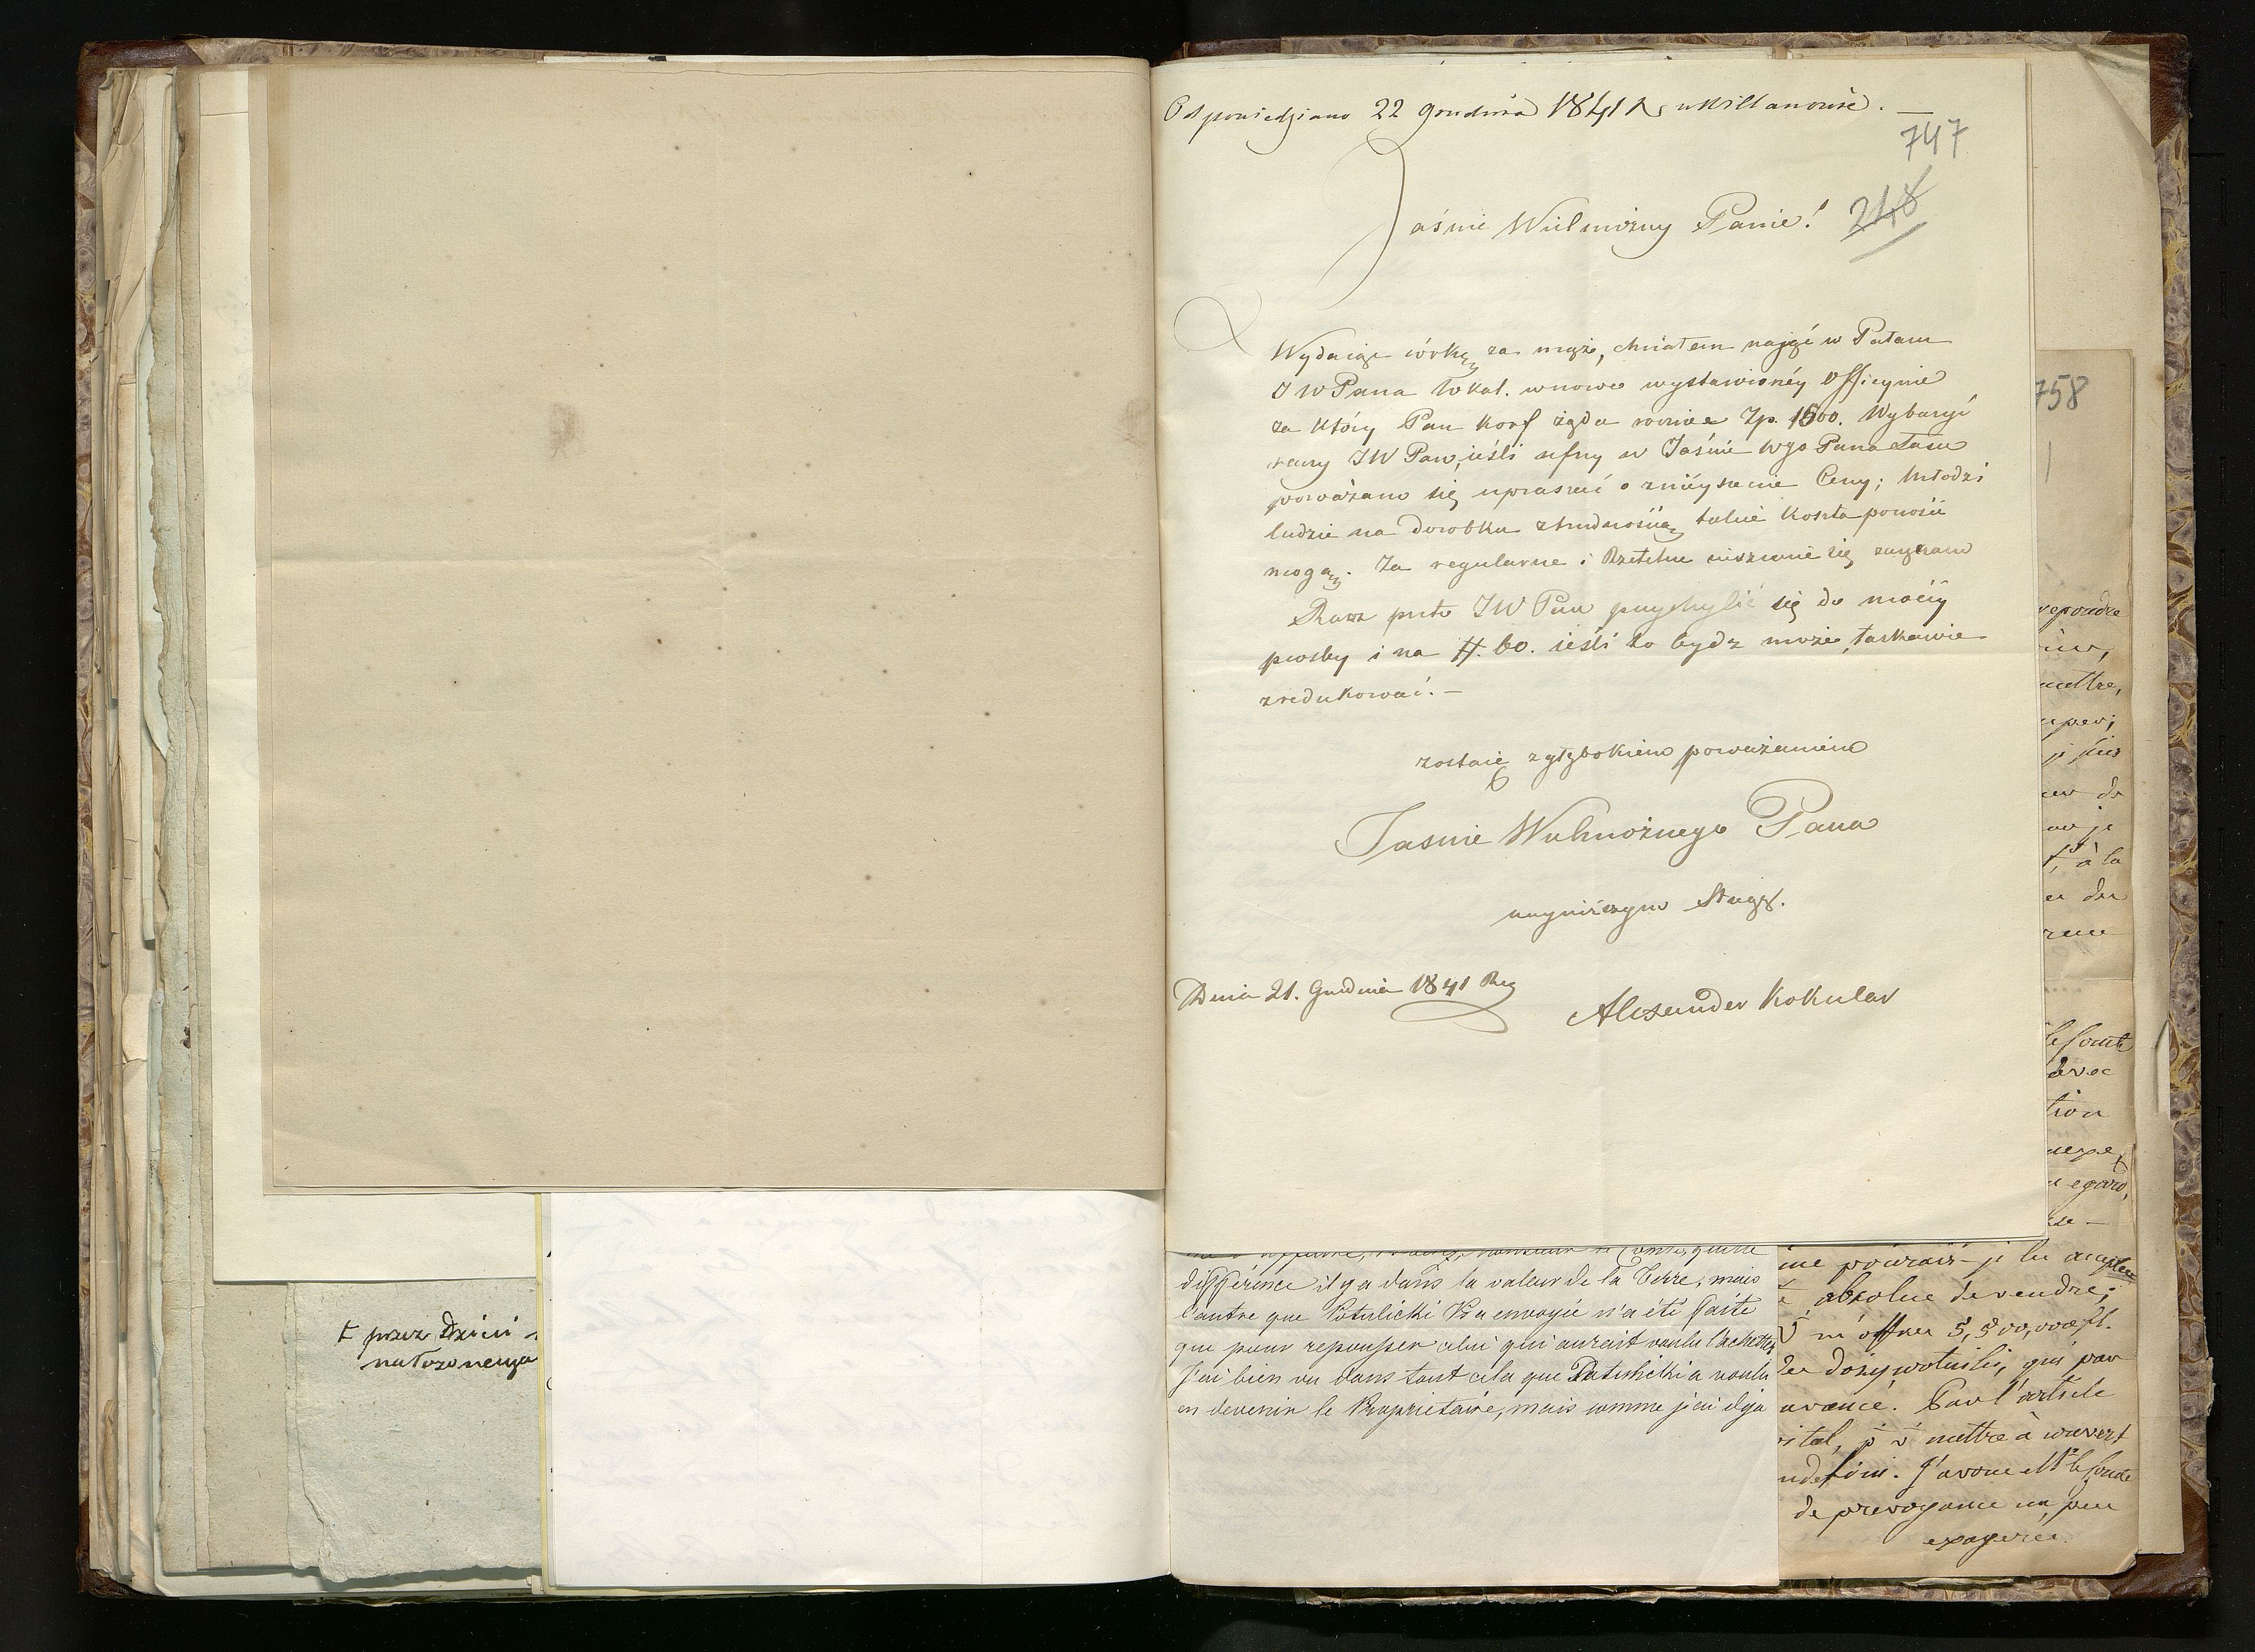 Odpowiedziano 22 grudnia 1841 R. w Willanowie. —
747
248
Jaśnie Wielmożny Panie!
Wydaiąc córkę za mąż, chciałem nająć w Pałacu
JW Pana lokal. w nowo wystawionéy Officynie
za który Pan Korf żąda rocznie Zp. 1500. Wybaczyć
raczy JW Pan, ieśli ufny w Jaśnie Wgo Pana Łasce
poważam się upraszać o zniżenie Ceny; Młodzi
ludzie na dorobku z trudnością takie koszta ponosić
mogą. Za regularne i Rzetelne uiszczanie się zaręczam
Racz przeto JW Pan przychylić się do moiéy
prośby i na #. 60. ieśli to bydz może, łaskawie
zredukować. —
zostaię z głębokiem poważaniem
Jaśnie Wielmożnego Pana
nayniższym Sługą.
Dnia 21. Grudnia 1841 Rku
Alexander Kokular
758
repondre
mettre,
je puis
à la
avec
tion
egard,
différence il y a dans la valeur de la Terre, mais
l'autre que Potulicki Va envoyée n'a été faite
que pour repousser celui qui aurait voulu l'achetter
J'ai bien vu dans tout cela que Potulicki a voulu
en devenir le Propriétaire, mais comme j'ai deja
me pourais-je lu accepter
absolue de vendre;
m'offrer 5,500,000 fl.
les dożywotniki, qui par
avance. Par l'article
ital, je v mettre à couvert
J'avoue Mr le Comte
de prevoyance un peu
exagerée.
przez Dzieci
nałożonego